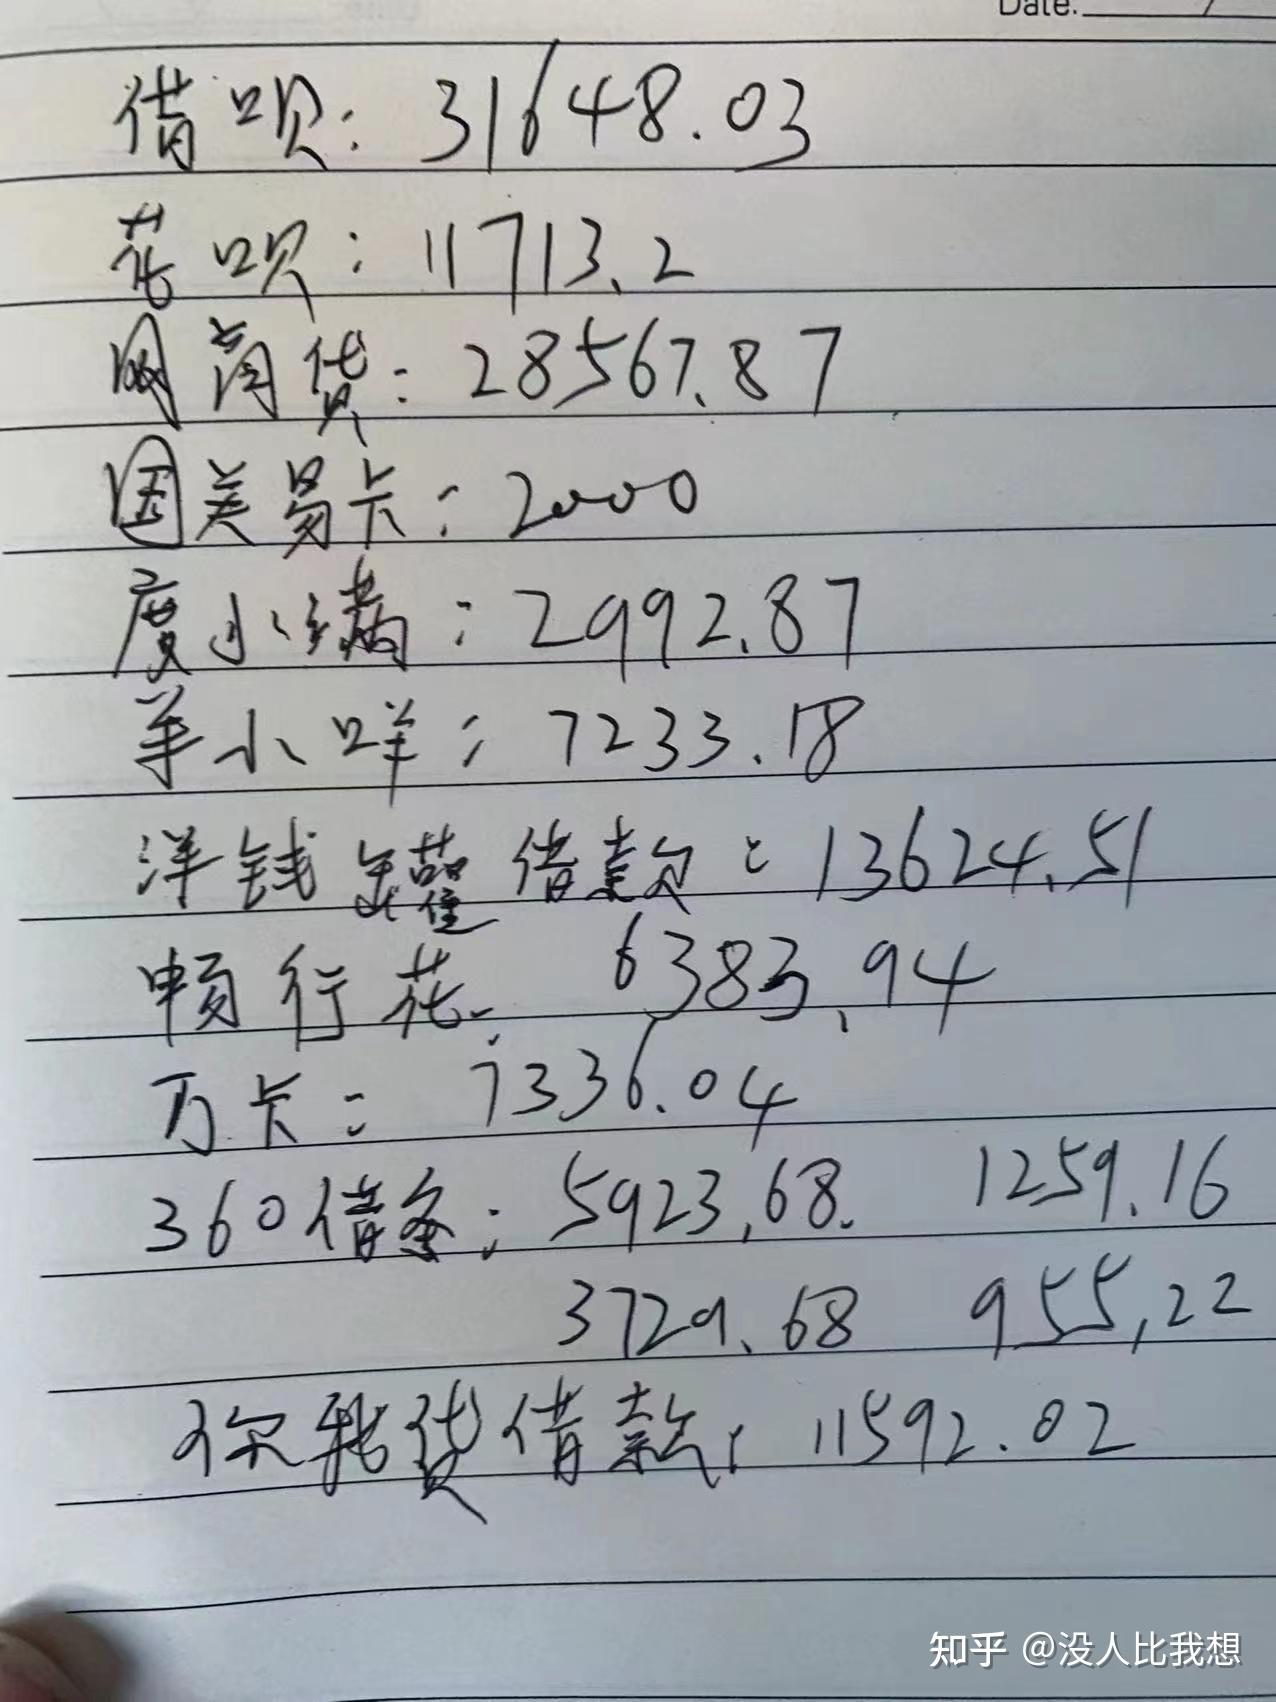 Date:
借呗：31648.03
花呗：11713.2
网商贷：28567.87
国美易卡：2000
度小满：2992.87
羊小咩：7233.18
洋钱罐借款：13624.51
畅行花：6383.94
万卡：7336.04
360借条：5923.68. 1259.16
3729.68 955.22
你我贷借款：11592.02
知乎 @没人比我想